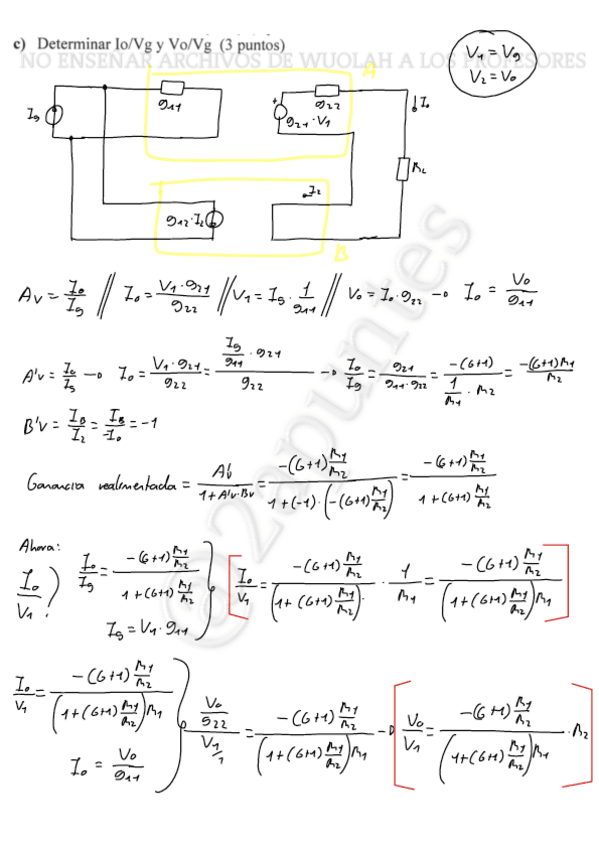 c) Determinar Io/Vg y Vo/Vg (3 puntos)
V1 = Vg
V2 = Vo
NO ENSEÑAR ARCHIVOS DE WUOLAH A LOS PROFESORES
A
Ig
g11
g22
g21·V1
Io
R2
I2
g12·I2
B
@2apuntes
Av = Io/Ig // Io = V1·g21/g22 // V1 = Ig·1/g11 // Vo = Io·g22 → Io = Vo/g11
A'v = Io/Is → Io = V1·g21/g22 = (Ig/g11·g21)/g22 → Io/Ig = g21/(g11·g22) = -(G+1)/(1/R1·R2) = -(G+1)R1/R2
B'v = IB/I2 = IB/-Io = -1
Ganancia realimentada = A'v/(1+A'v·Bv) = -(G+1)R1/R2/(1+(-1)·(-(G+1)R1/R2)) = -(G+1)R1/R2/(1+(G+1)R1/R2)
Ahora:
Io/V1? Io/Ig = -(G+1)R1/R2/(1+(G+1)R1/R2)
Ig = V1·g11
[Io/V1 = -(G+1)R1/R2/(1+(G+1)R1/R2)·1/R1 = -(G+1)R1/R2/((1+(G+1)R1/R2)R1)]
Io/V1 = -(G+1)R1/R2/((1+(G+1)R1/R2)R1)
Io = Vo/g11
(Vo/g22)/(V1/1) = -(G+1)R1/R2/((1+(G+1)R1/R2)R1) → [Vo/V1 = -(G+1)R1/R2/((1+(G+1)R1/R2)R1)·R2]